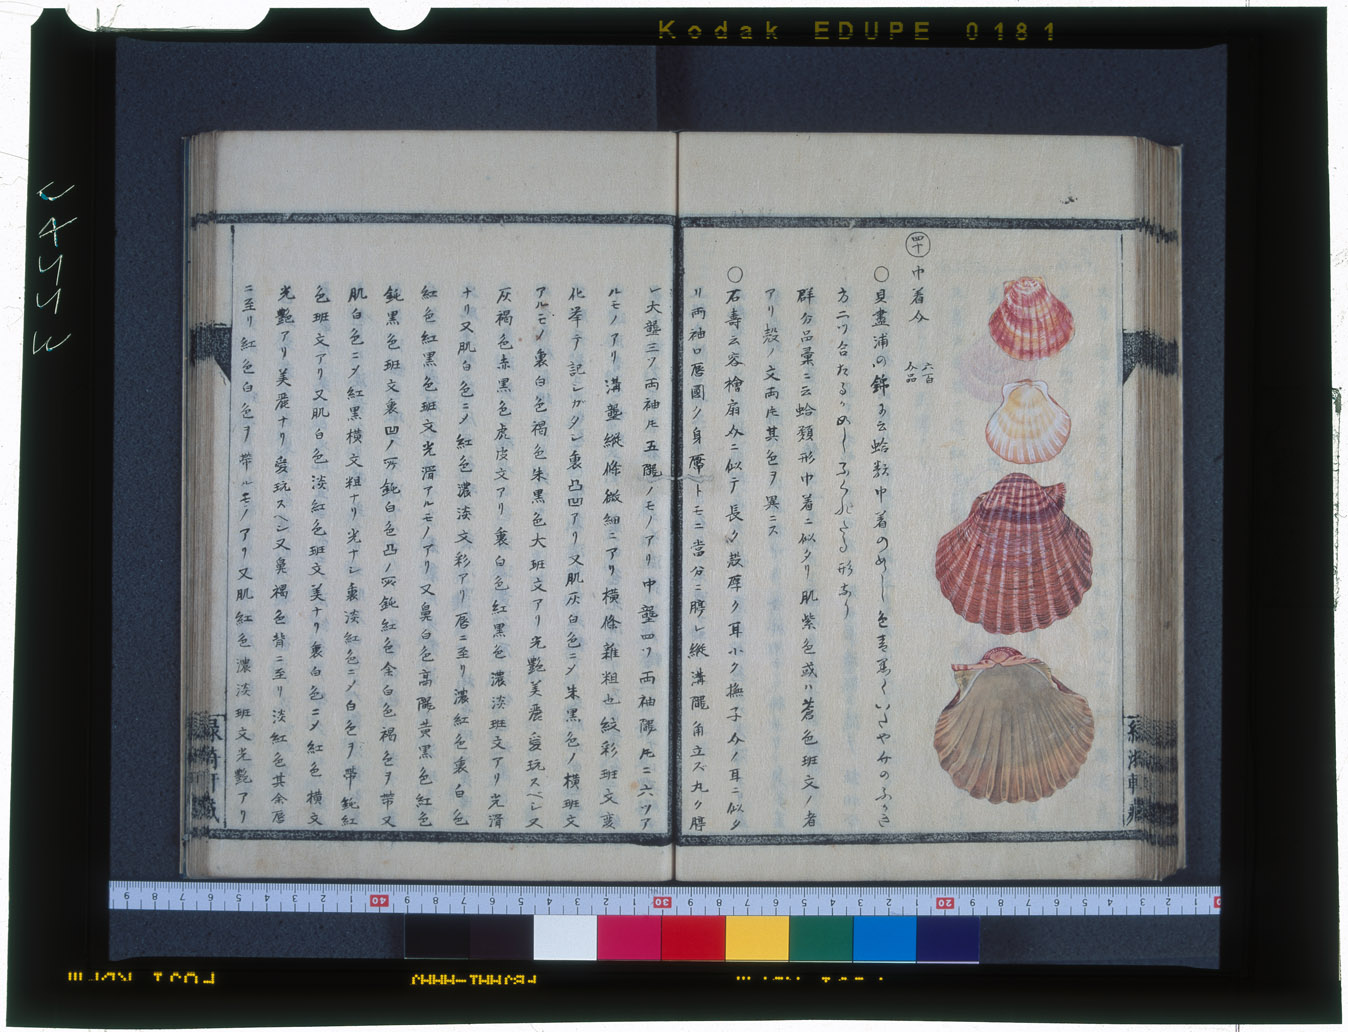 Kodak EDUPE 0181
四十
巾着介
六百
介品
〇貝盡浦の錦ニ云蛤類巾着のめしし色青黒くいたや介のふかき
方二ツ合たるかめし ふくれたる形あり
群分品彙ニ云蛤類形巾着ニ似タリ肌紫色或ハ蒼色斑文ノ者
アリ殻ノ文両片其色ヲ異ニス
〇石壽云容檜扇介ニ似テ長ク殻厚ク耳小ク撫子介ノ耳ニ似タ
リ両袖口唇圓ク身厚トモニ當分ニ膨レ縦溝隴角立ズ丸ク膨
レ大壟三ツ両袖片五隴ノモノアリ中壟四ツ両袖隴片ニ六ツア
ルモノアリ溝壟縦條微細ニアリ横條雜粗也紋彩斑文変
化挙テ記シガタシ裏凸凹アリ又肌灰白色ニメ朱黒色ノ横斑文
アルモノ裏白色褐色朱黒色大斑文アリ光艶美麗愛玩スベシ又
灰褐色赤黒色虎皮文アリ裏白色紅黒色濃淡斑文アリ光滑
ナリ又肌白色ニメ紅色濃淡文彩アリ唇ニ至リ濃紅色裏白色
紅色紅黒色斑文光滑アルモノアリ又鼻白色高隴黄黒色紅色
鈍黒色斑文裏凹ノ所鈍白色凸ノ所鈍紅色全白色褐色ヲ帯又
肌白色ニメ紅黒横文粗ナリ光ナシ裏淡紅色ニメ白色ヲ帯鈍紅
色斑文アリ又肌白色淡紅色斑文美ナリ裏白色ニメ紅色横文
光艶アリ美麗ナリ愛玩スベシ又鼻褐色背ニ至リ淡紅色其余唇
ニ至リ紅色白色ヲ帯ルモノアリ又肌紅色濃淡斑文光艶アリ